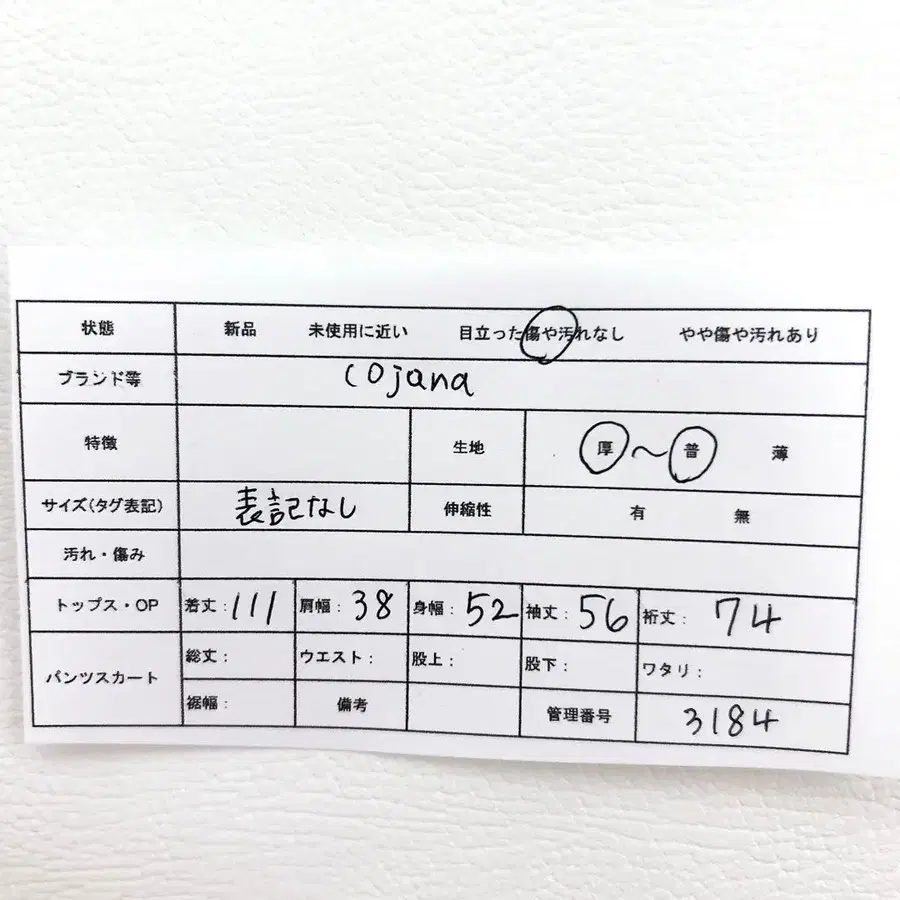 状態 新品 未使用に近い 目立った傷や汚れなし やや傷や汚れあり
ブランド等 cojana
特徴 生地 厚 〜 普 薄
サイズ(タグ表記) 表記なし 伸縮性 有 無
汚れ・傷み
トップス・OP 着丈：111 肩幅：38 身幅：52 袖丈：56 裄丈：74
パンツスカート 総丈： ウエスト： 股上： 股下： ワタリ：
裾幅： 備考 管理番号 3184